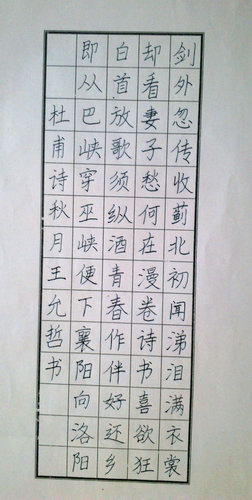 剑外忽传收蓟北初闻涕泪满衣裳
却看妻子愁何在漫卷诗书喜欲狂
白首放歌须纵酒青春作伴好还乡
即从巴峡穿巫峡便下襄阳向洛阳
杜甫诗秋月王允哲书